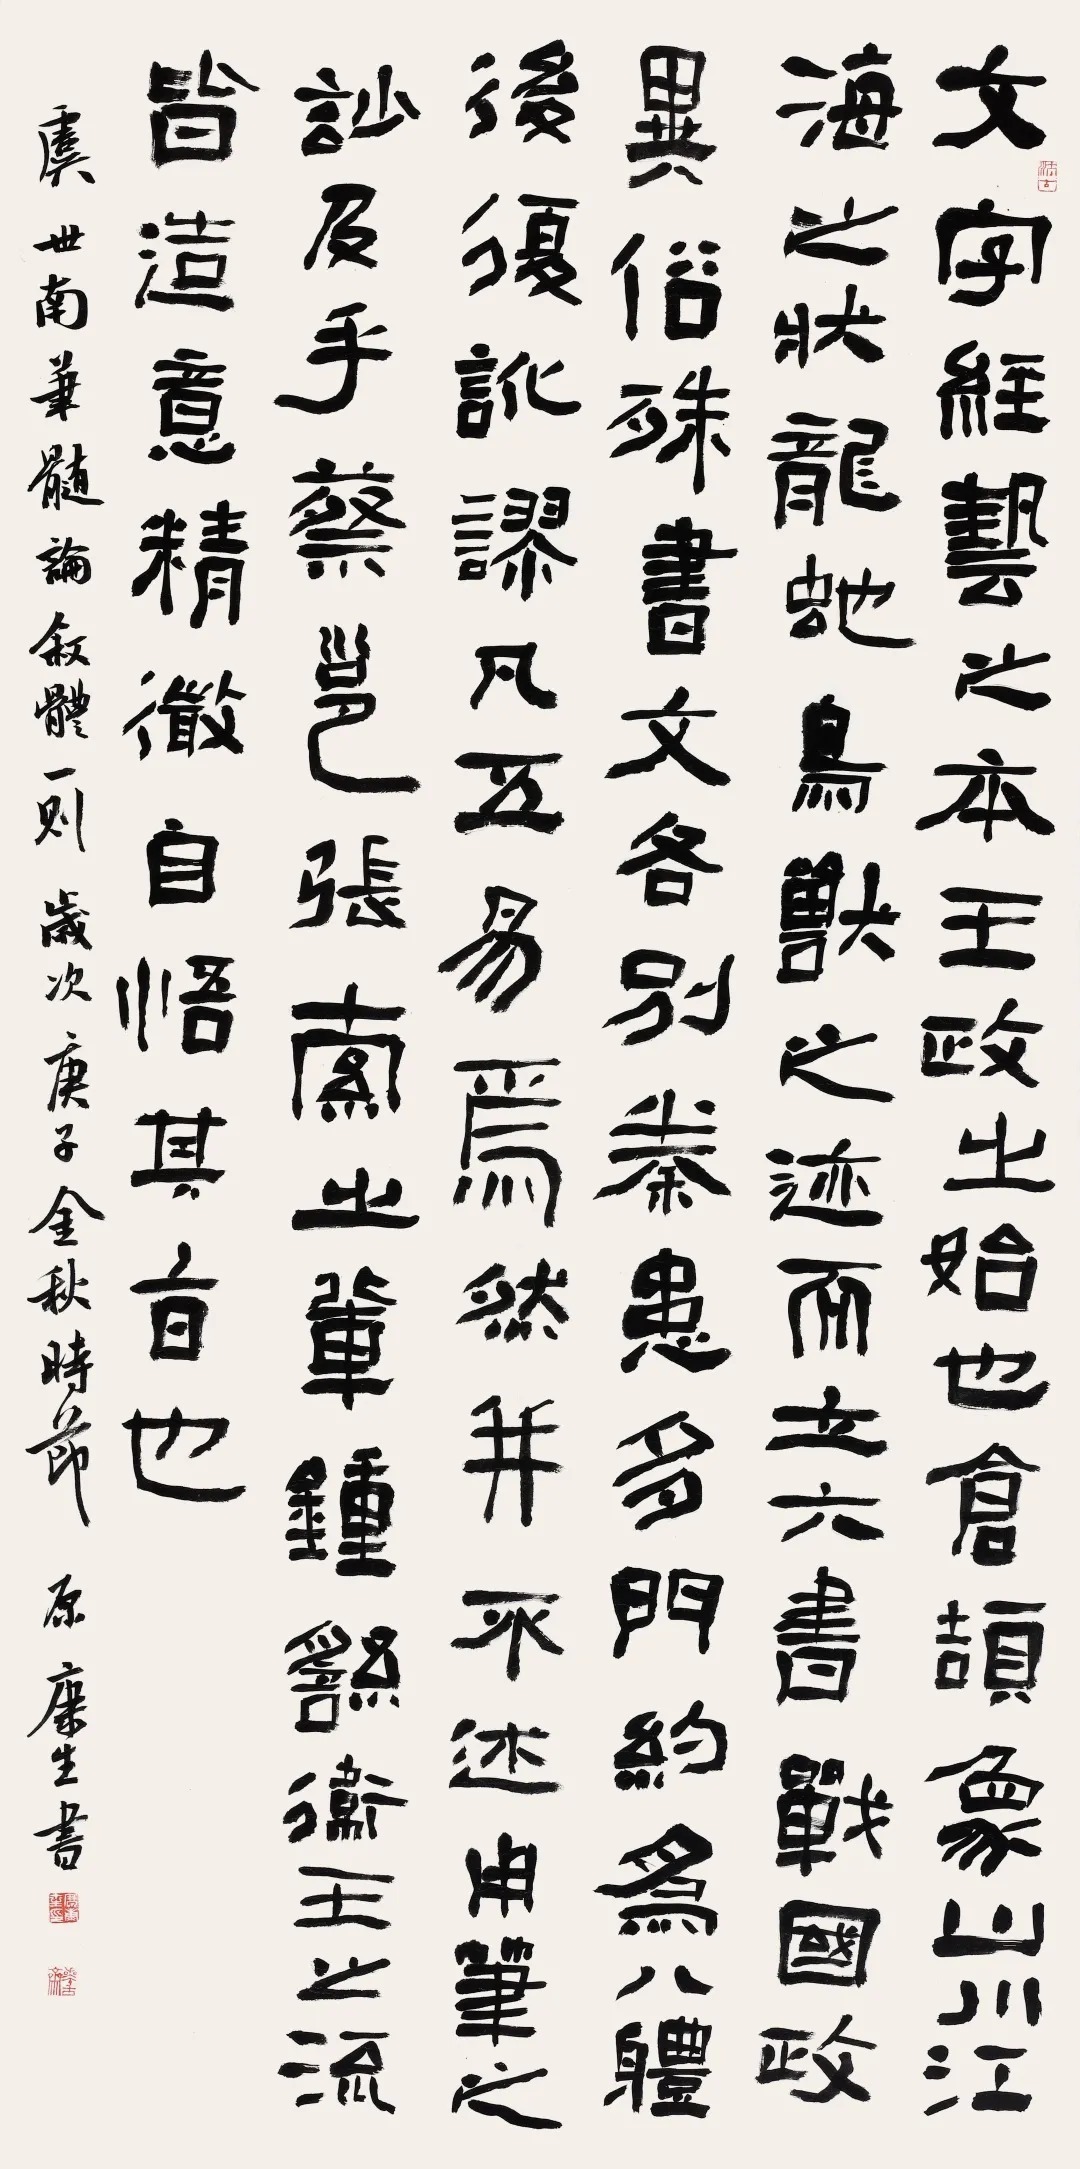 文字經藝之本王政之始也倉頡象山川江
海之狀龍虵鳥獸之迹而立六書戰國政
異俗殊書文各別秦患多門約爲八體
後復訛謬凡五易焉然井不述用筆之
訬及乎蔡邕張索之輩鍾繇衞王之流
皆造意精微自悟其旨也
虞世南筆髓論叙體一則 歲次庚子金秋時節 原康生書